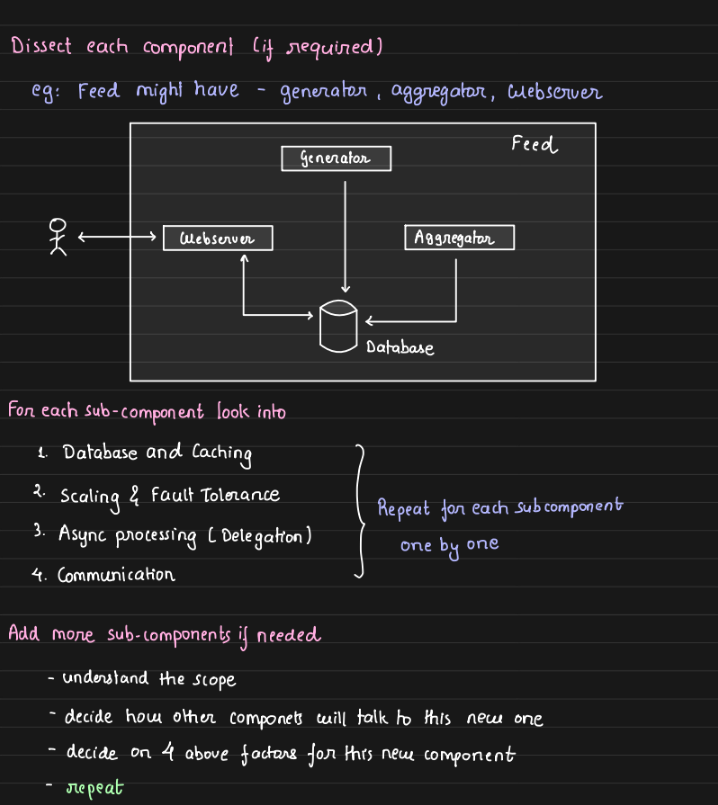 Dissect each component (if required)
eg: Feed might have - generator, aggregator, webserver
Feed
Generator
Webserver
Aggregator
Database
For each sub-component look into
1. Database and Caching
2. Scaling & Fault Tolerance
3. Async processing (Delegation)
4. Communication
Repeat for each subcomponent
one by one
Add more sub-components if needed
- understand the scope
- decide how other componets will talk to this new one
- decide on 4 above factors for this new component
- repeat